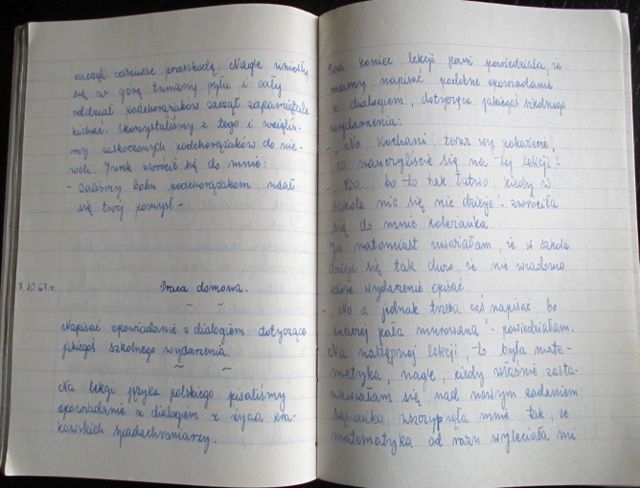 zaczęli odsuwać przeszkodę. Nagle wzniosły
się w górę tumany pyłu i cały
oddział podchorążaków zaczął zapamiętale
kichać. Skorzystaliśmy z tego i wzięliś-
my zaskoczonych podchorążaków do nie-
woli. Jurek zwrócił się do mnie:
- Daliśmy bobu podchorążakom, udał
się twój pomysł -
7. XI 61 r.
Praca domowa.
Napisać opowiadanie z dialogiem dotyczące
jakiegoś szkolnego wydarzenia.
Na lekcji języka polskiego pisaliśmy
opowiadanie z dialogiem z życia kra-
kowskich spadochroniarzy.
Pod koniec lekcji pani powiedziała, że
mamy napisać podobne opowiadanie
z dialogiem, dotyczące jakiegoś szkolnego
wydarzenia:
- „Na, kochani, teraz wy pokażcie,
co nauczyliście się na tej lekcji" -
- „Ba, bo to tak łatwo, kiedy w
szkole nic się nie dzieje" - zwróciła
się do mnie koleżanka.
Ja natomiast uważałam, że w szkole
dzieje się tak dużo, że nie wiadomo
które wydarzenie opisać.
- No a jednak trzeba coś napisać bo
inaczej pała murowana" - powiedziałam.
Na następnej lekcji, to była mate-
matyka, nagle, kiedy właśnie zasta-
nawiałam się nad nowym zadaniem
sąsiadka uszczypnęła mnie tak, że
matematyka od razu wyleciała mi